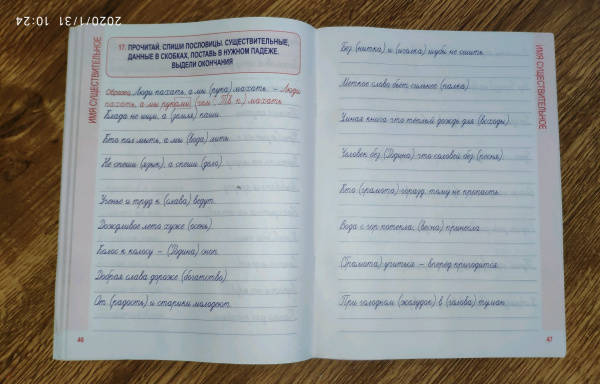 2020/1/31 10:24
ИМЯ СУЩЕСТВИТЕЛЬНОЕ
17. ПРОЧИТАЙ. СПИШИ ПОСЛОВИЦЫ. СУЩЕСТВИТЕЛЬНЫЕ,
ДАННЫЕ В СКОБКАХ, ПОСТАВЬ В НУЖНОМ ПАДЕЖЕ.
ВЫДЕЛИ ОКОНЧАНИЯ
Образец. Люди пахать, а мы (рука) махать. – Люди
пахать, а мы руками (чем?, Тв. п.) махать.
Клада не ищи, а (земля) паши.
Кто пол мыть, а мы (вода) лить.
Не спеши (язык), а спеши (дело).
Ученье и труд к (слава) ведут.
Дождливое лето хуже (осень).
Колос к колосу – (Родина) сноп.
Добрая слава дороже (богатство).
От (радость) и старики молодеют.
46
Без (нитка) и (иголка) шубы не сшить.
Меткое слово бьёт сильнее (палка).
Умная книга что тёплый дождь для (всходы).
Человек без (Родина) что соловей без (песня).
Кто (грамота) горазд, тому не пропасть.
Вода с гор потекла: (весна) принесла.
(Грамота) учиться – вперёд пригодится.
При голодном (желудок) в (голова) туман.
ИМЯ СУЩЕСТВИТЕЛЬНОЕ
47